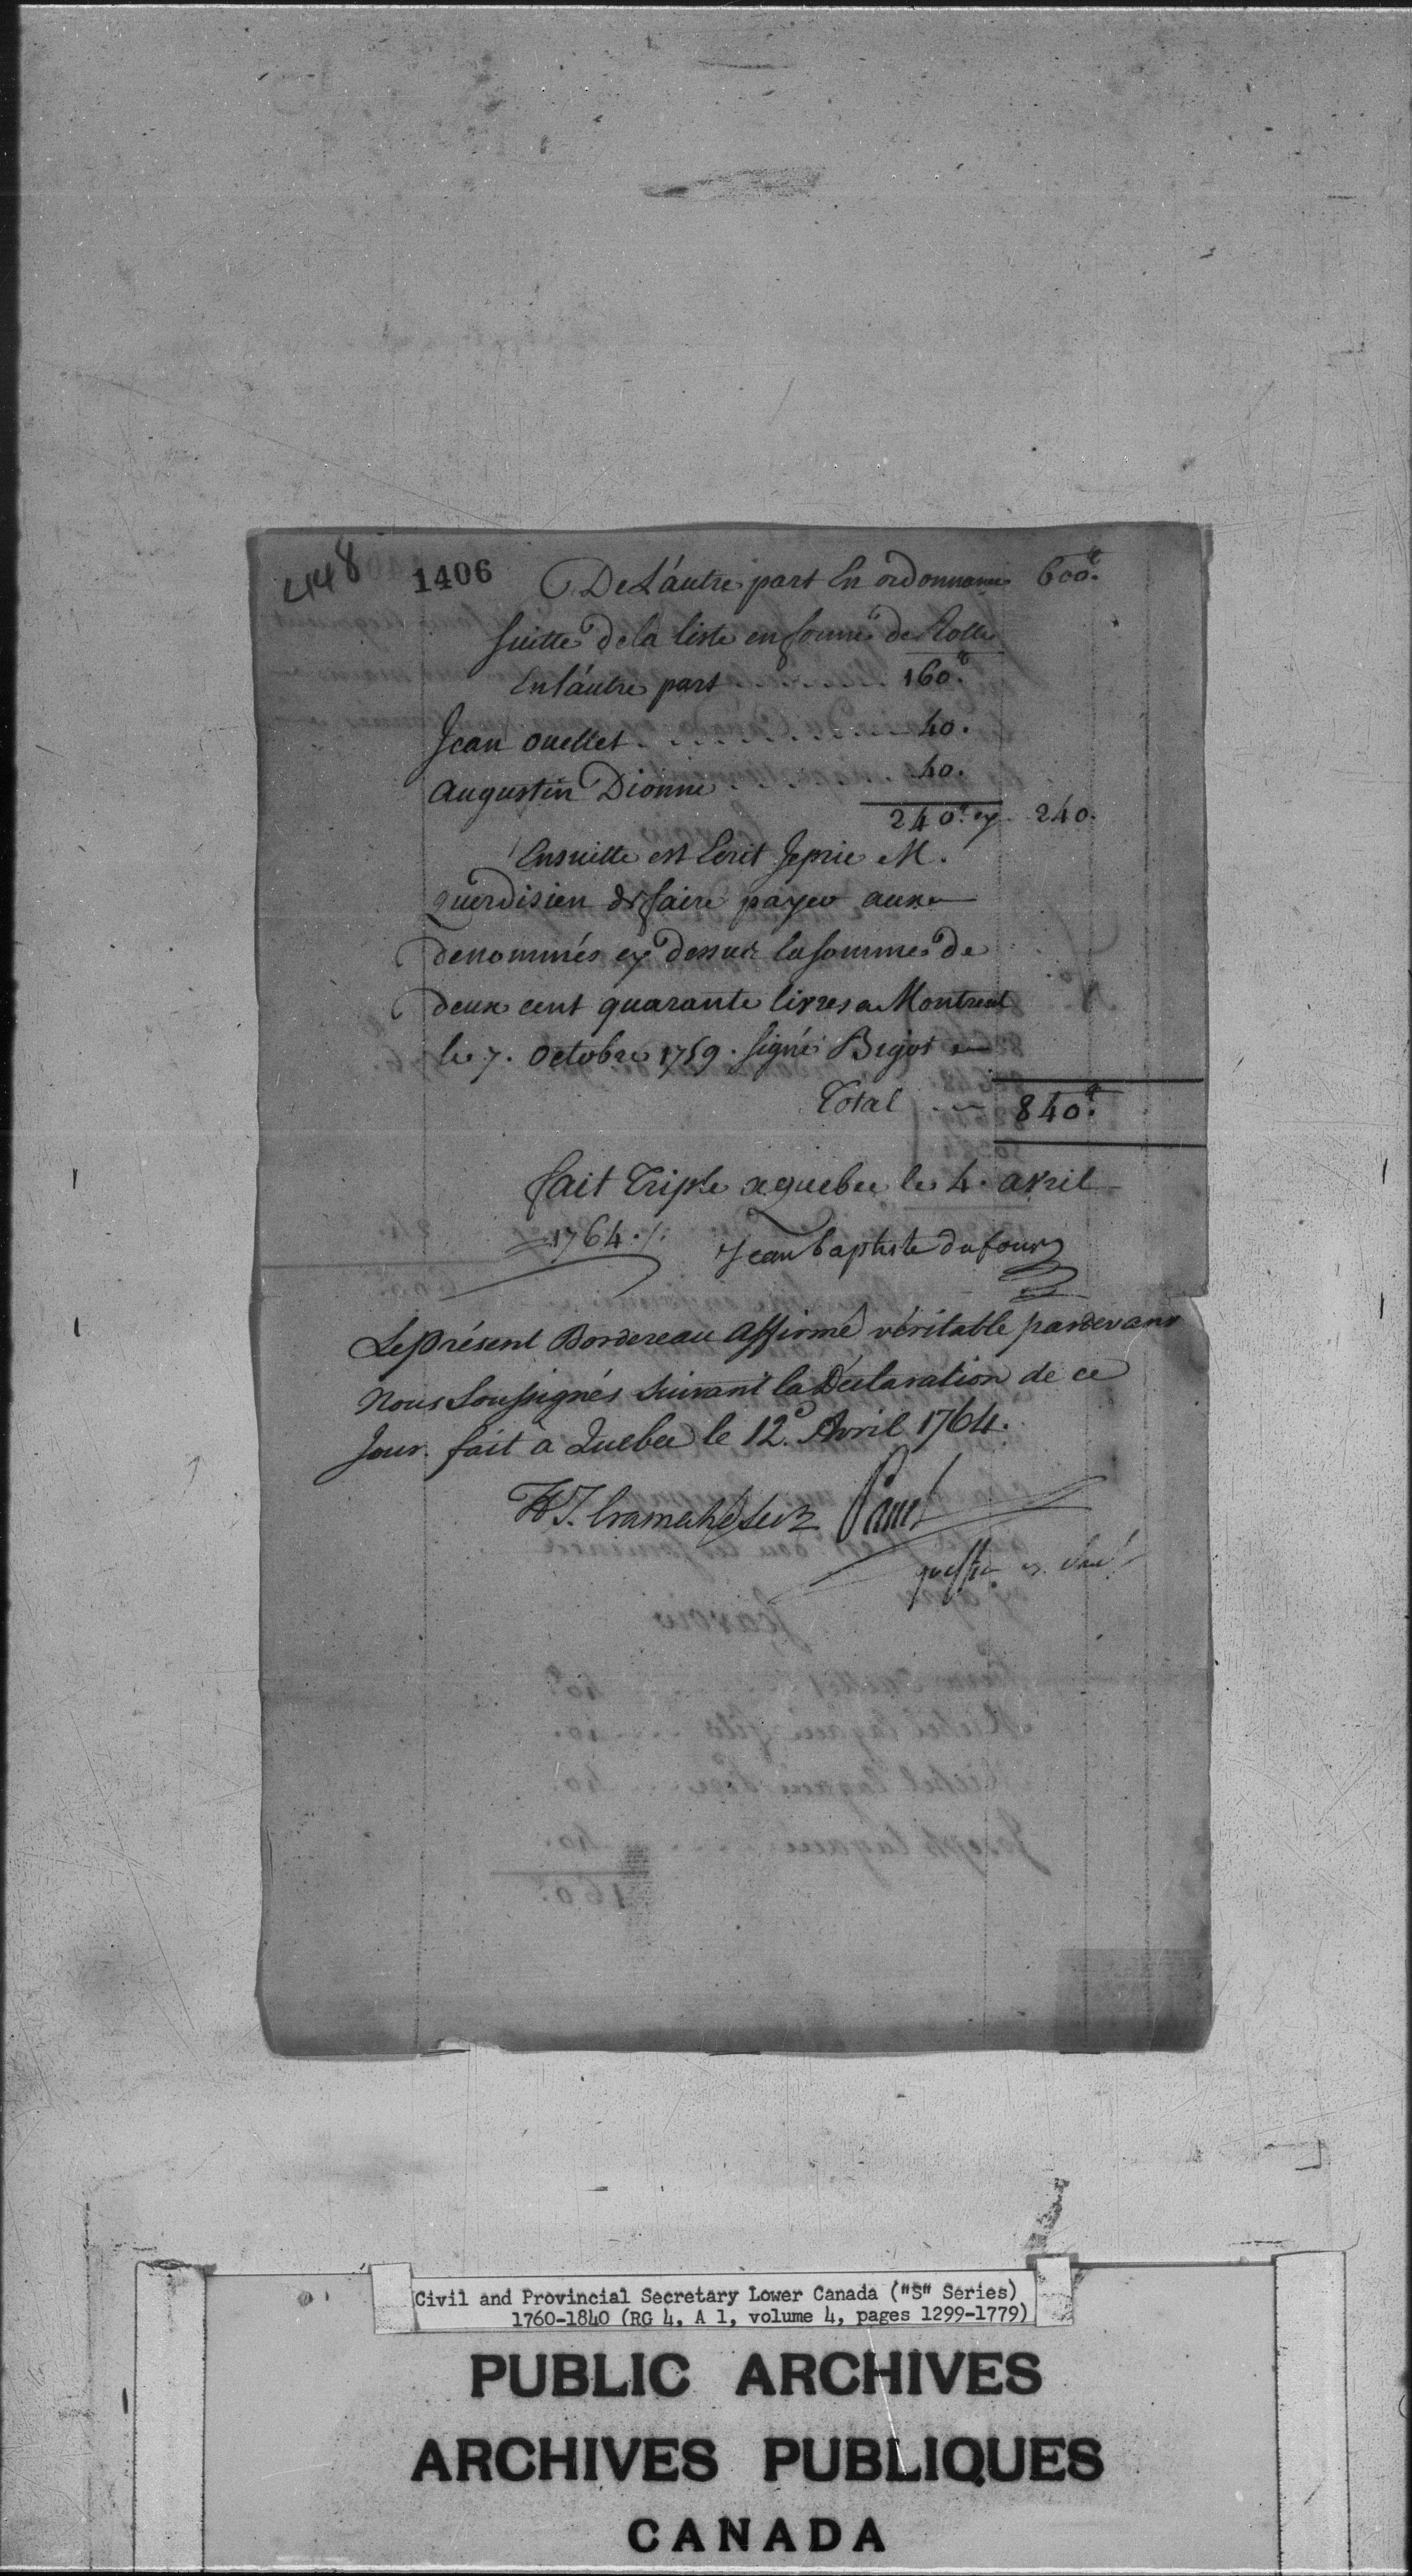 448 1406 De L'autre part En ordonnance 600#.
Suitte de la liste enforme de Rolle
En l'autre part . . . . 160#.
Jean Ouellet . . . . . . . . . . 40.
Augustin Dionne . . . . 40.
240# cy 240.
Ensuitte est Ecrit Jeprie M.
Querdisien de faire payer aux
denommés cy dessus lasomme de
deux cent quarante livres a Montreal
le 7. Octobre 1759. Signé Bigot
Total . . 840#.
fait Triple a quebec le 4. avril
1764 ./.
Jean baptiste dufour
Le présent Bordereau Affirmé véritable pardevant
Nous Soussignés suivant la Déclaration de ce
Jour. fait à Quebec le 12e. Avril 1764.
H. T. Cramahé Panet
Civil and Provincial Secretary Lower Canada ("S" Series)
1760-1840 (RG 4, A 1, volume 4, pages 1299-1779)
PUBLIC ARCHIVES
ARCHIVES PUBLIQUES
CANADA